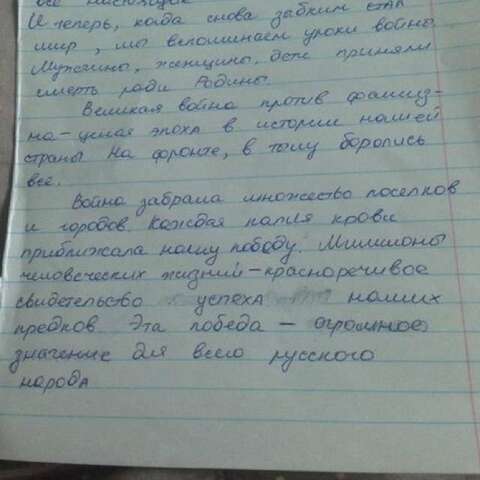 все настоящих
И теперь, когда снова зыбким стал
мир, мы вспоминаем уроки войны
Мужчины, женщины, дети приняли
смерть ради Родины.
Великая война против фашиз-
ма-целая эпоха в истории нашей
страны На фронте, в тылу боролись
все.
Война забрала множество поселков
и городов. Каждая капля крови
приближала нашу победу. Миллионы
человеческих жизний-красноречивое
свидетельство успеха наших
предков Эта победа - огромное
значение для всего русского
народа